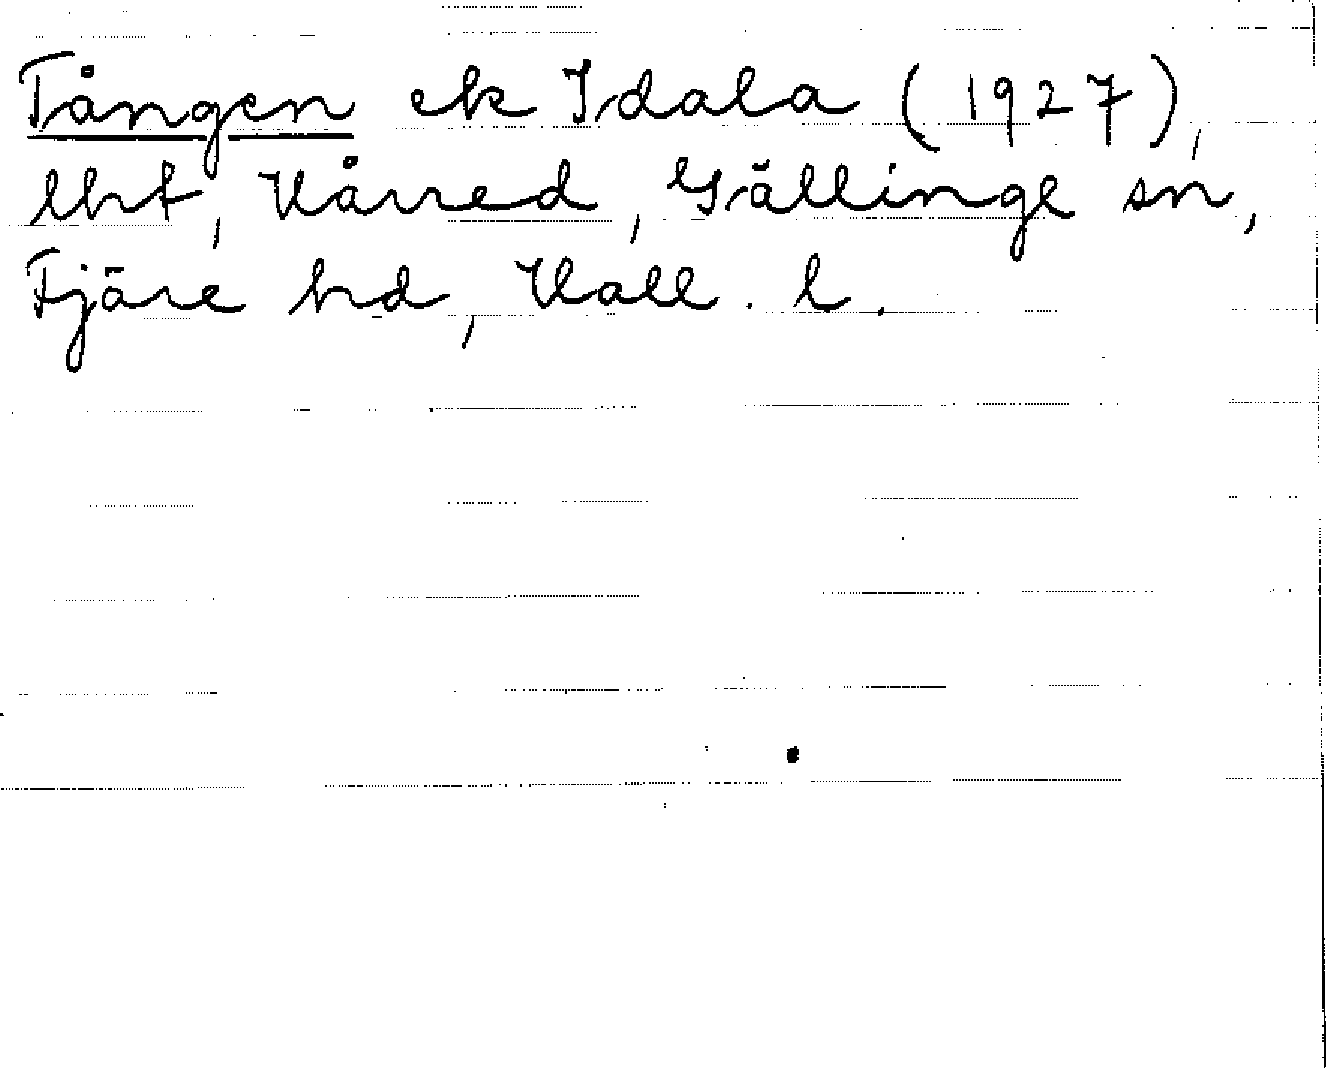 Tången ek Idala (1927),
lht, Hårred, Gällinge sn,
Fjäre hd, Hall. l.